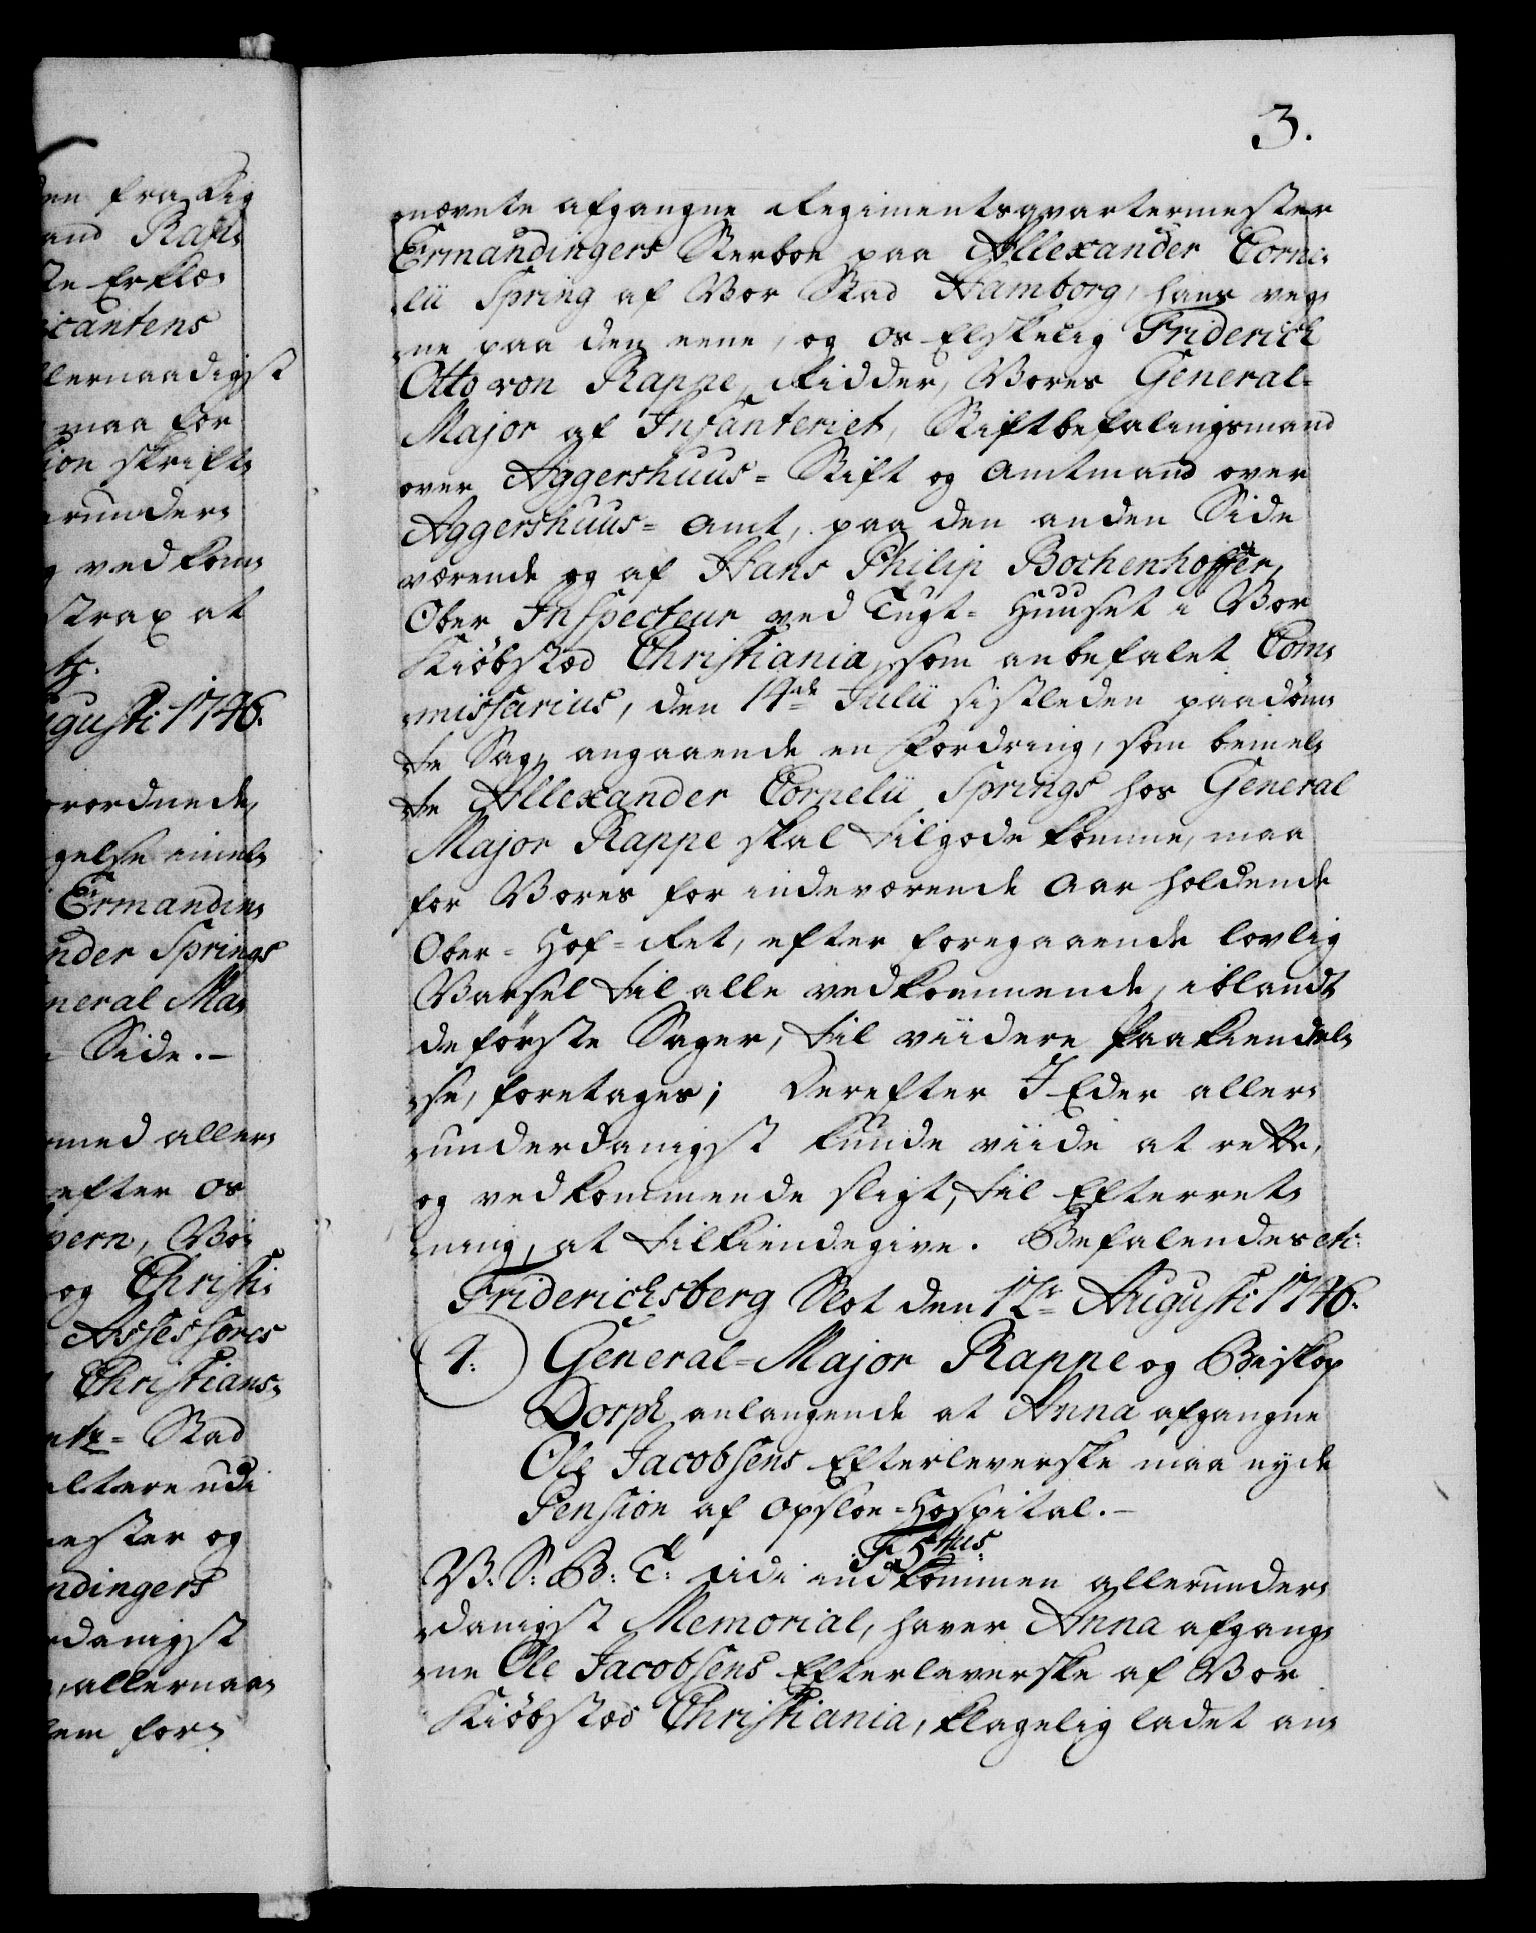 3.
nævnte afgangne Regimentsqvartermester
Ermandingers Sterboe paa Allexander Corne-
lii Spring af Vor Stad Hamborg, hans veg-
ne paa den eene, og Os Elskelig Friderich
Otto von Rappe, Ridder, Vores General-
Major af Infanteriet, Stiftbefalingsmand
over Aggershuus-Stift og Amtmand over
Aggershuus-Amt, paa den anden Side
værende og af Hans Philip Bochenhoffer,
Ober Inspecteur ved Tugt-Huuset i Vor
Kiøbstæd Christiania, som anbefalet Com-
missarius, den 14de Julii sistleden paadøm-
te Sag, angaaende en Fordring, som bemel-
te Allexander Cornelii Springs hos General
Major Rappe skal tilgode komme, maa
for Vores for indeværende Aar holdende
Ober-Hof-Ret, efter foregaaende lovlig
Varsel til alle vedkommende, iblandt
de første Sager, til viidere Paakiendel-
se, foretages; Derefter I Eder aller-
underdanigst kunde viide at rette,
og vedkommende sligt, til Efterret-
ning, at tilkiendegive. Befalendes etc:
Friderichsberg Slot den 12te Augusti 1746.
4: General-Major Rappe og Biskop
Dorph anlangende at Anna afgangne
Ole Jacobsens Efterleverske maa nyde
Pension af Opsloe-Hospital.-
F 5tus
V: S: B: T: udi indkommen allerunder-
danigst Memorial, haver Anna afgang-
ne Ole Jacobsens Efterleverske af Vor
Kiøbstæd Christiania, klagelig ladet an-
en fra sig
and
te Erklæ-
icantens
llernaadigst
maa for
ion skrift-
erunder-
vedkom-
strax at
tc.
ugusti 1746.
rordnede,
gelse
Ermandin-
nder Springs
neral Ma-
Side.-
med aller-
efter Os
vern, Vo-
og Christi-
Assessores
Christians-
Stad
udi
mester og
ndingers
danigst
allernaa-
em for-